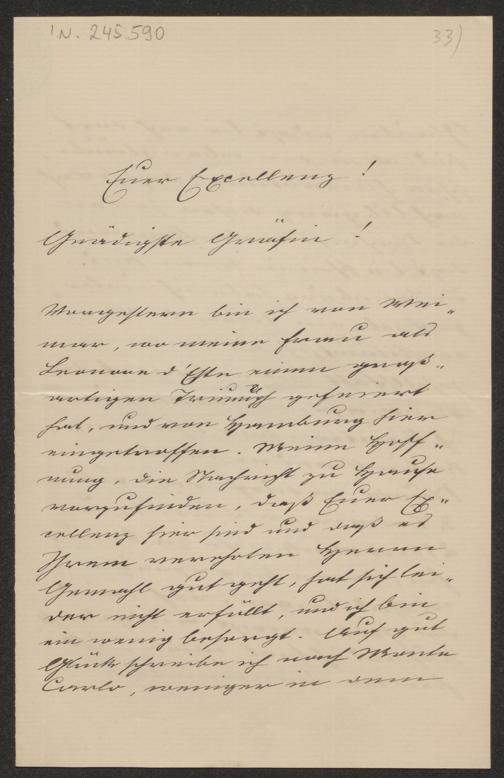 I.N. 245.590
33)
Euer Excellenz!
Gnädigste Gräfin!
Vorgestern bin ich von Wei-
mar, wo meine Frau als
Leonore d'Este einen groß-
artigen Triumph gefeiert
hat, und von Hamburg hier
eingetroffen. Meine Hoff-
nung, die Nachricht zu Hause
vorzufinden, daß Euer Ex-
cellenz hier sind und daß es
Ihrem verehrten Herrn
Gemahl gut geht, hat sich lei-
der nicht erfüllt, und ich bin
ein wenig besorgt. Auf gut
Glück schreibe ich nach Monte
Carlo, weniger in dem